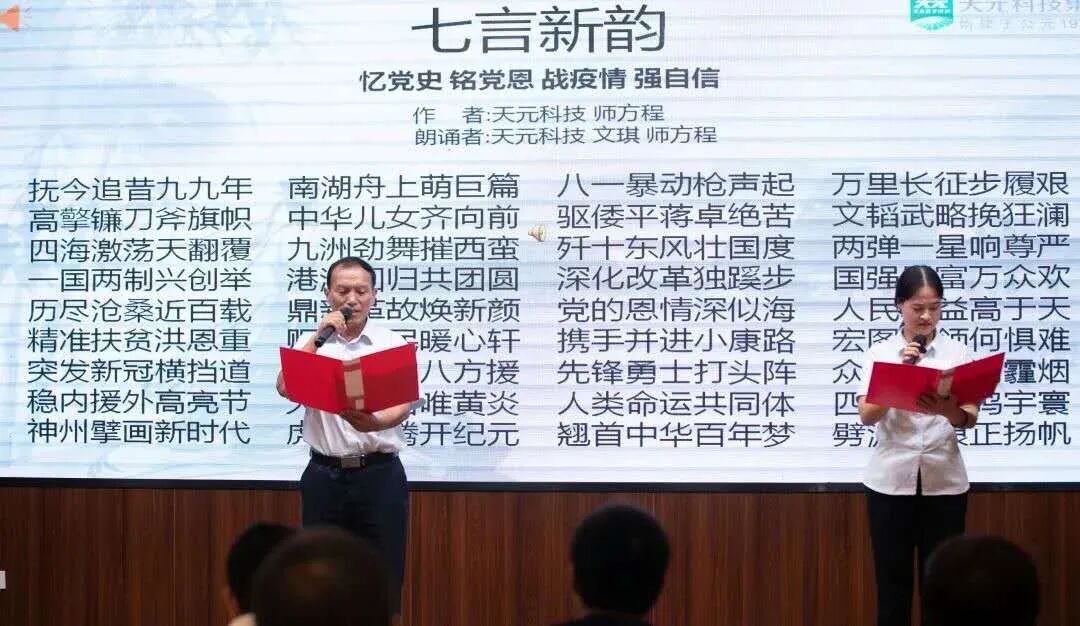 天元科技集
七言新韵
忆党史 铭党恩 战疫情 强自信
作 者:天元科技 师方程
朗诵者:天元科技 文琪 师方程
抚今追昔九九年 南湖舟上萌巨篇 八一暴动枪声起 万里长征步履艰
高擎镰刀斧旗帜 中华儿女齐向前 驱倭平蒋卓绝苦 文韬武略挽狂澜
四海激荡天翻覆 九洲劲舞摧西蛮 歼十东风壮国度 两弹一星响尊严
一国两制兴创举 港 回归共团圆 深化改革独蹊步 国强 富万众欢
历尽沧桑近百载 鼎 革故焕新颜 党的恩情深似海 人民 益高于天
精准扶贫洪恩重 暖心轩 携手并进小康路 宏图 何惧难
突发新冠横挡道 八方援 先锋勇士打头阵 众 霾烟
稳内援外高亮节 唯黄炎 人类命运共同体 四 宇寰
神州擘画新时代 虎 腾开纪元 翘首中华百年梦 劈 正扬帆